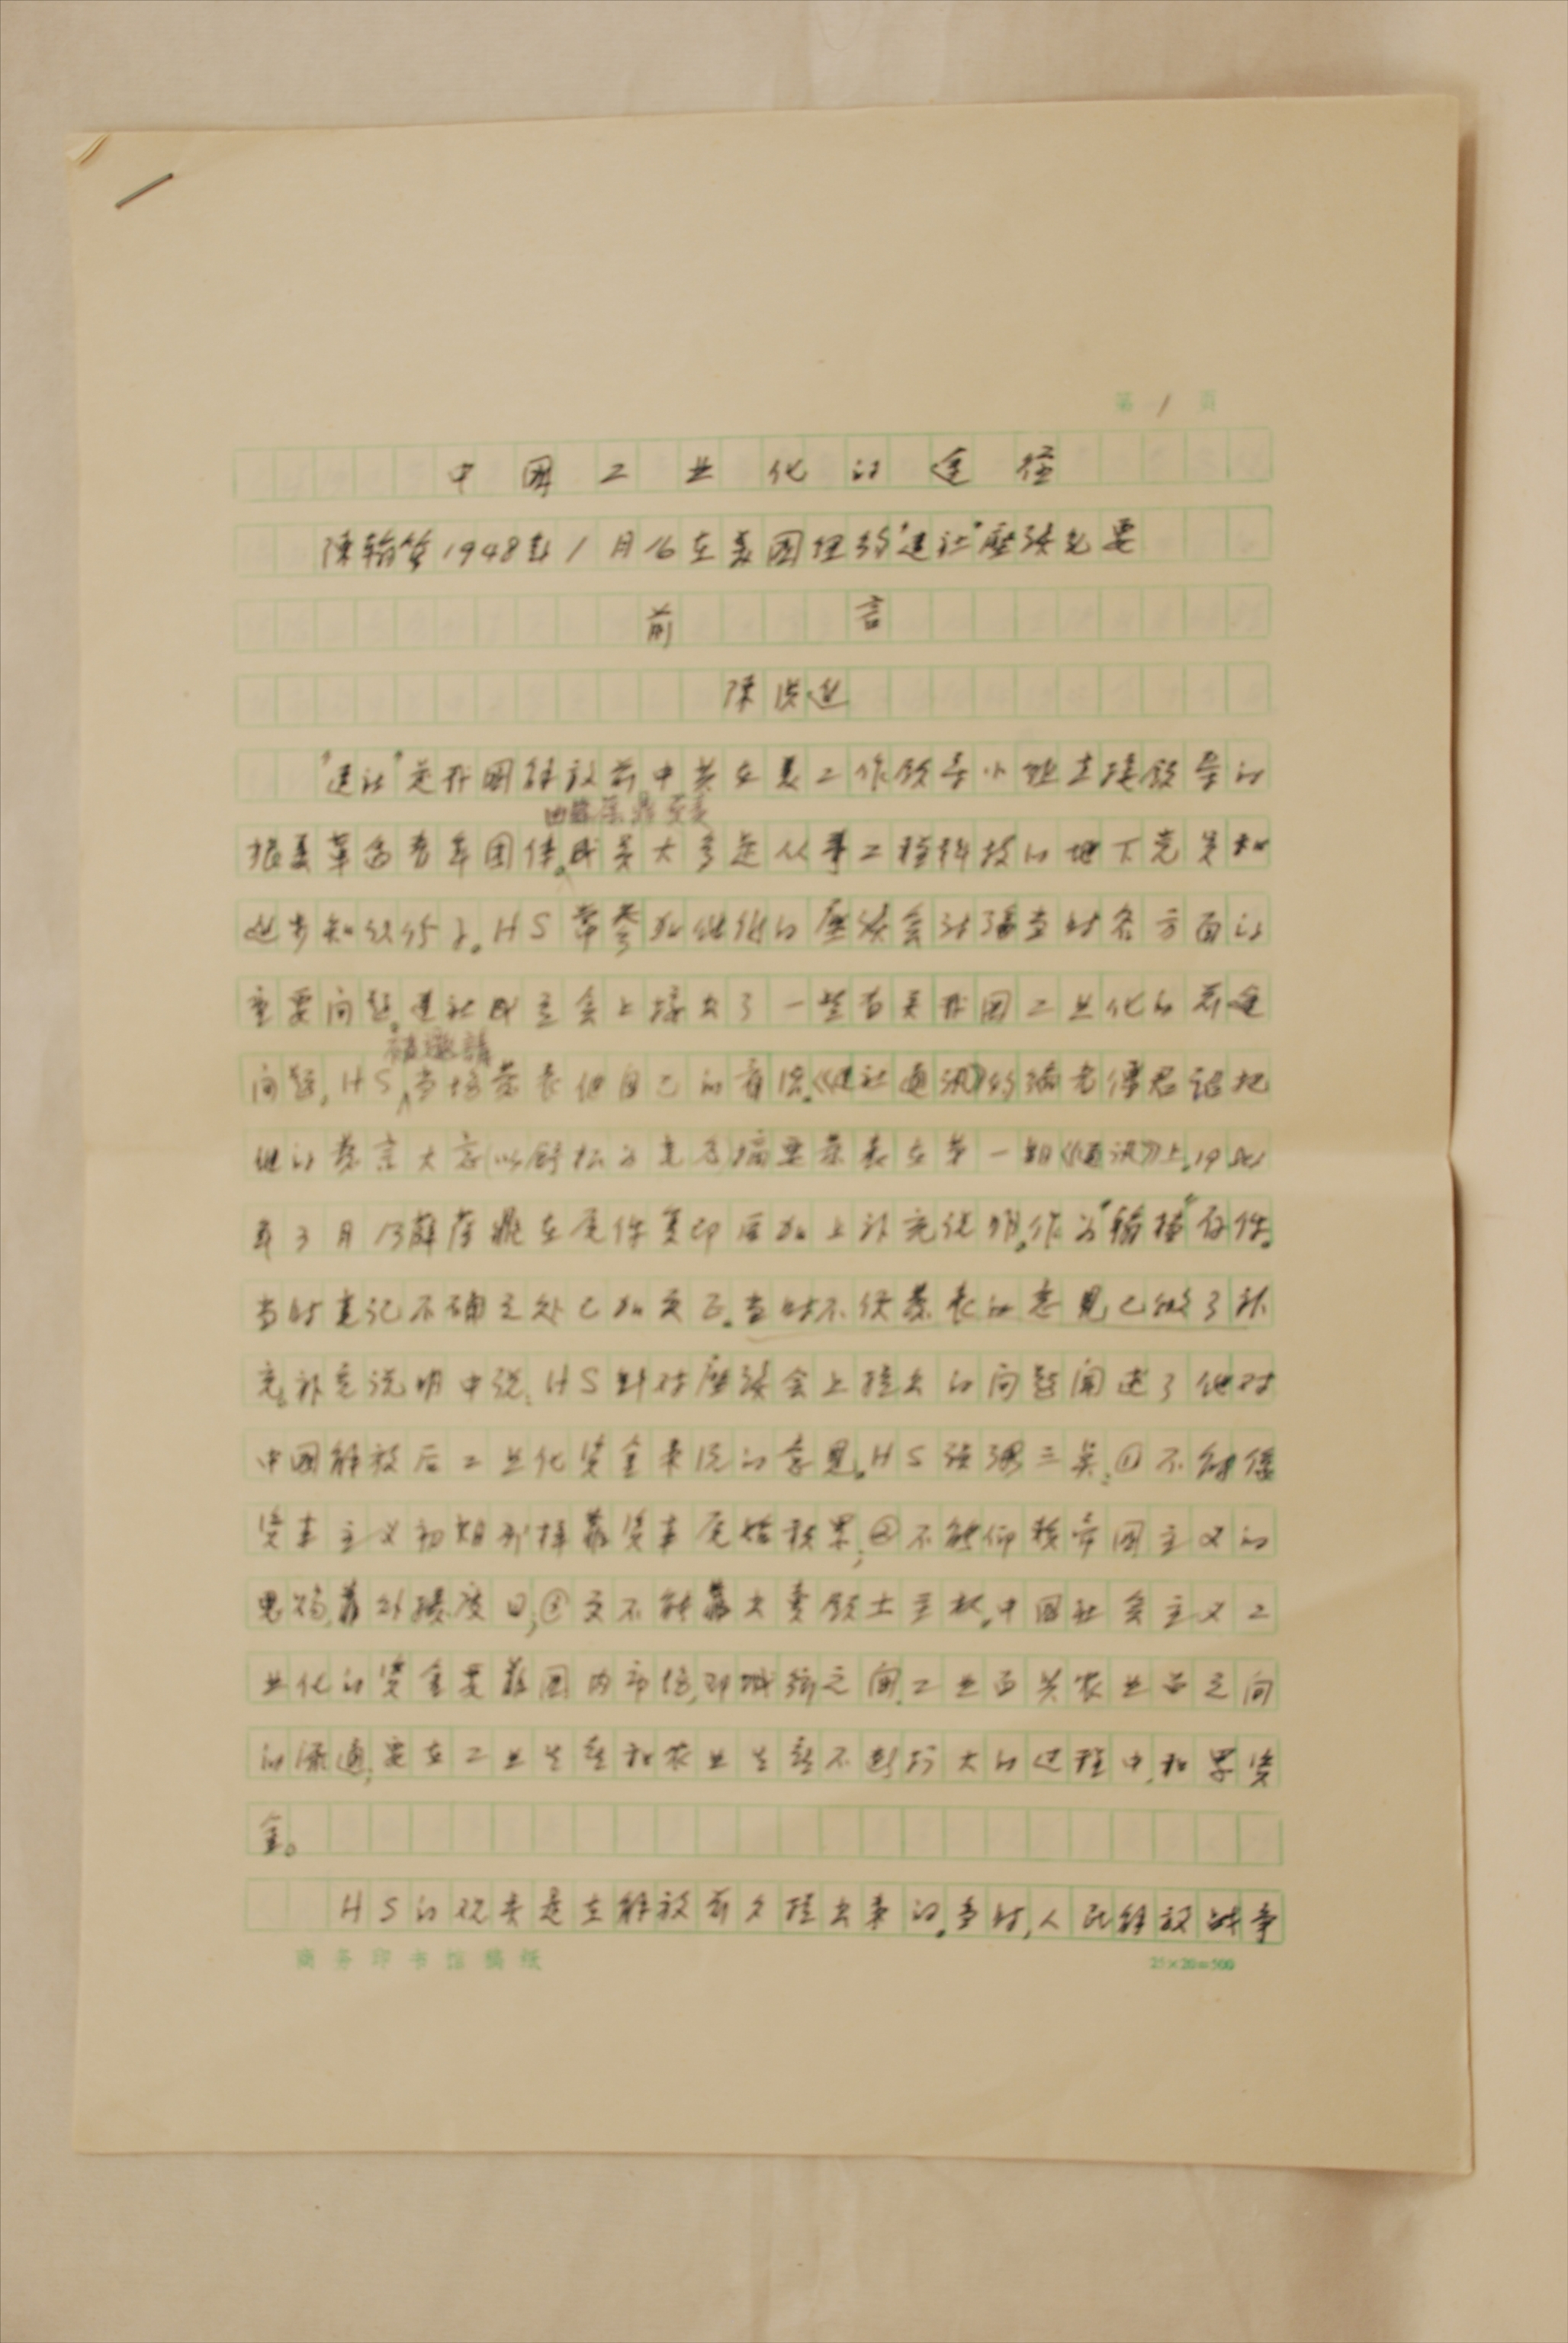 第 1 页
中国工业化的途径
陈翰笙1948年1月16在美国纽约"建社"座谈纪要
前言
陈洪进
"建社"是我国解放前中共在美工作领导小组直接领导的
由薛葆鼎负责
留美革命青年团体。成员大多是从事工程科技的地下党员和
进步知识分子。HS常参加他们的座谈会讨论当时各方面的
重要问题。建社成立会上提出了一些有关我国工业化的前途
被邀请
问题,HS当场发表他自己的看法。《建社通讯》的编者
他的发言大意(以舒松为笔名)摘要发表在第一期《通讯》上。
年3月13薛葆鼎在原件复印后加上补充说明。作为"翰档"存件。
当时笔记不确之处已加更正。当时不便发表的意见已做了补
充。补充说明中说,HS针对座谈会上提出的问题阐述了他对
中国解放后工业化资金来源的意见。HS强调三点:①不能像
资本主义初期那样靠资本原始积累;②不能仰赖帝国主义的
恩赐,靠外援度日;③又不能靠出卖领土主权。中国社会主义工
业化的资金要靠国内市场,即城乡之间、工业品与农业品之间
的流通;要在工业生产和农业生产不断扩大的过程中,积累资
金。
HS的观点是在解放前夕提出来的。当时,人民解放战争
商务印书馆稿纸
25×20=500